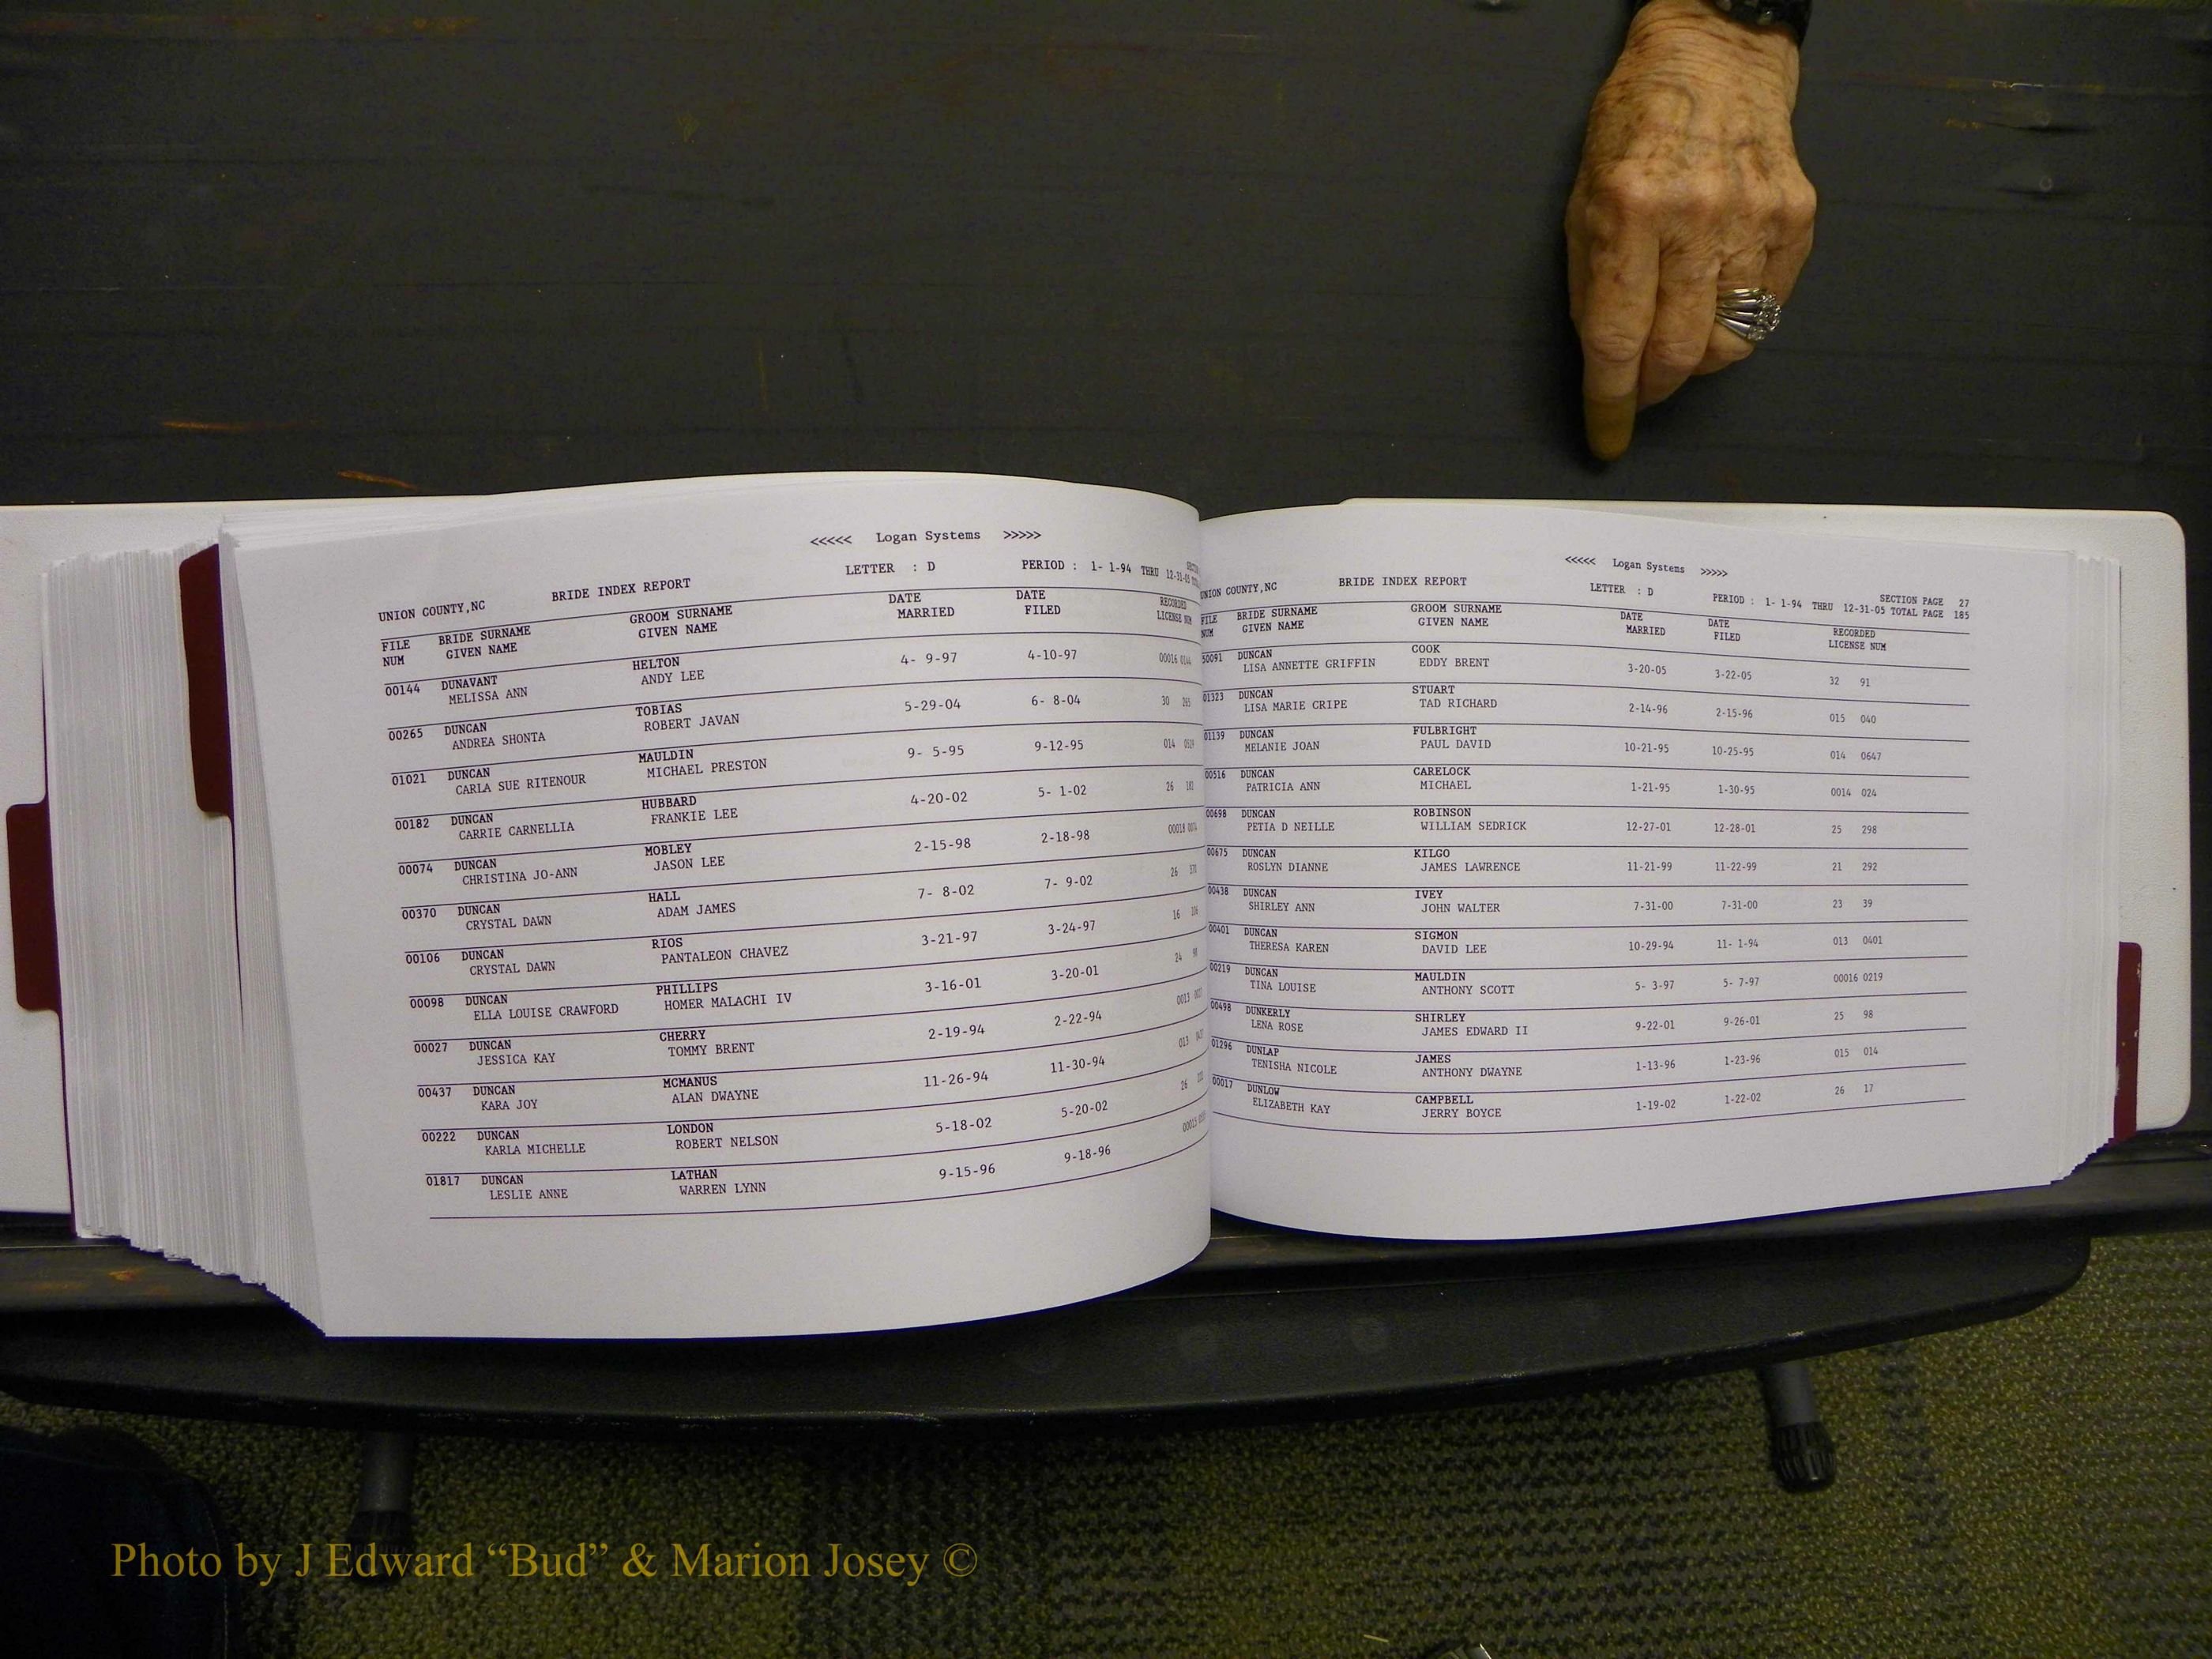 <<<<< Logan Systems >>>>>
UNION COUNTY,NC BRIDE INDEX REPORT LETTER : D PERIOD : 1- 1-94 THRU 12-31-05
FILE BRIDE SURNAME GROOM SURNAME DATE DATE RECORDED
NUM GIVEN NAME GIVEN NAME MARRIED FILED LICENSE NUM
00144 DUNAVANT HELTON 4- 9-97 4-10-97 00016
MELISSA ANN ANDY LEE
00265 DUNCAN TOBIAS 5-29-04 6- 8-04 30
ANDREA SHONTA ROBERT JAVAN
01021 DUNCAN MAULDIN 9- 5-95 9-12-95 014
CARLA SUE RITENOUR MICHAEL PRESTON
00182 DUNCAN HUBBARD 4-20-02 5- 1-02 26
CARRIE CARNELLIA FRANKIE LEE
00074 DUNCAN MOBLEY 2-15-98 2-18-98 00018
CHRISTINA JO-ANN JASON LEE
00370 DUNCAN HALL 7- 8-02 7- 9-02 26
CRYSTAL DAWN ADAM JAMES
00106 DUNCAN RIOS 3-21-97 3-24-97 16
CRYSTAL DAWN PANTALEON CHAVEZ
00098 DUNCAN PHILLIPS 3-16-01 3-20-01 24
ELLA LOUISE CRAWFORD HOMER MALACHI IV
00027 DUNCAN CHERRY 2-19-94 2-22-94 0013
JESSICA KAY TOMMY BRENT
00437 DUNCAN MCMANUS 11-26-94 11-30-94 013
KARA JOY ALAN DWAYNE
00222 DUNCAN LONDON 5-18-02 5-20-02 26
KARLA MICHELLE ROBERT NELSON
01817 DUNCAN LATHAN 9-15-96 9-18-96 00015
LESLIE ANNE WARREN LYNN
<<<<< Logan Systems >>>>>
SECTION PAGE 27
UNION COUNTY,NC BRIDE INDEX REPORT LETTER : D PERIOD : 1- 1-94 THRU 12-31-05 TOTAL PAGE 185
FILE BRIDE SURNAME GROOM SURNAME DATE DATE RECORDED
NUM GIVEN NAME GIVEN NAME MARRIED FILED LICENSE NUM
50091 DUNCAN COOK 3-20-05 3-22-05 32 91
LISA ANNETTE GRIFFIN EDDY BRENT
01323 DUNCAN STUART 2-14-96 2-15-96 015 040
LISA MARIE CRIPE TAD RICHARD
01139 DUNCAN FULBRIGHT 10-21-95 10-25-95 014 0647
MELANIE JOAN PAUL DAVID
00516 DUNCAN CARELOCK 1-21-95 1-30-95 0014 024
PATRICIA ANN MICHAEL
00698 DUNCAN ROBINSON 12-27-01 12-28-01 25 298
PETIA D NEILLE WILLIAM SEDRICK
00675 DUNCAN KILGO 11-21-99 11-22-99 21 292
ROSLYN DIANNE JAMES LAWRENCE
00438 DUNCAN IVEY 7-31-00 7-31-00 23 39
SHIRLEY ANN JOHN WALTER
00401 DUNCAN SIGMON 10-29-94 11- 1-94 013 0401
THERESA KAREN DAVID LEE
00219 DUNCAN MAULDIN 5- 3-97 5- 7-97 00016 0219
TINA LOUISE ANTHONY SCOTT
00498 DUNKERLY SHIRLEY 9-22-01 9-26-01 25 98
LENA ROSE JAMES EDWARD II
01296 DUNLAP JAMES 1-13-96 1-23-96 015 014
TENISHA NICOLE ANTHONY DWAYNE
00017 DUNLOW CAMPBELL 1-19-02 1-22-02 26 17
ELIZABETH KAY JERRY BOYCE
Photo by J Edward “Bud” & Marion Josey ©